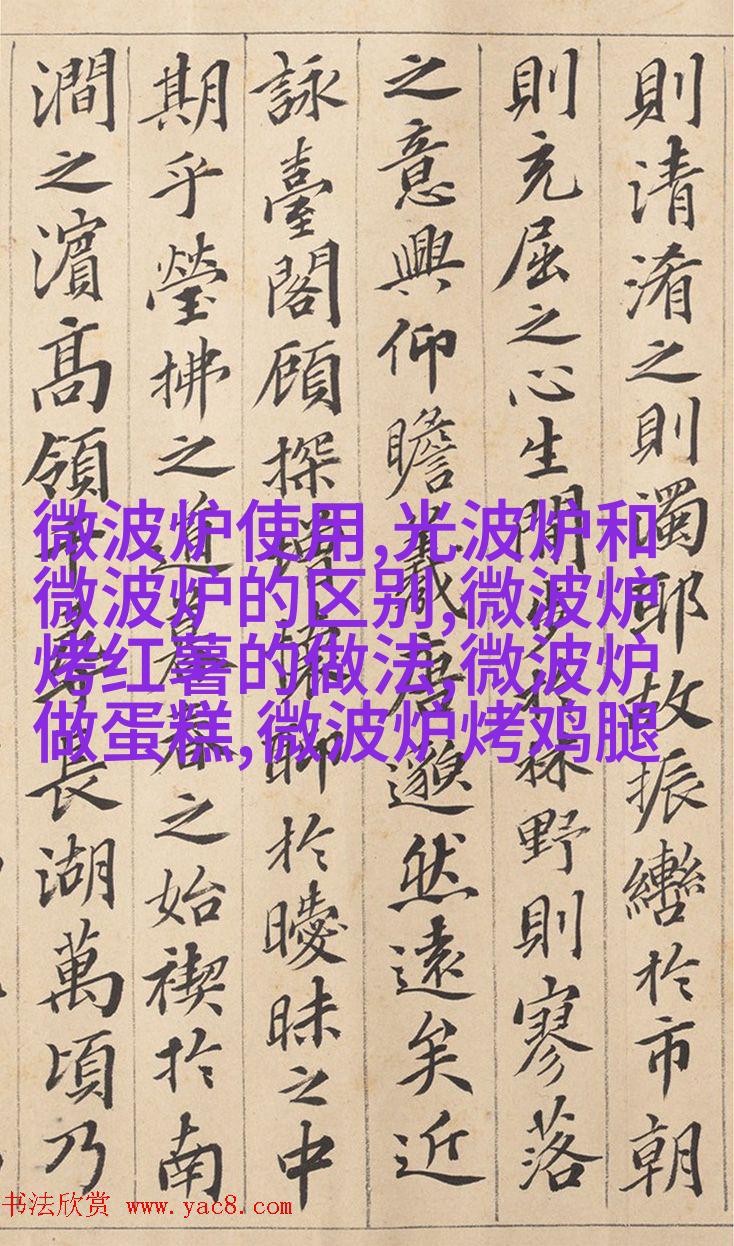 則清淆之則濁耶故振轡於市朝
則充屈之心生閒步於林野則寥落
之意興仰瞻羲唐邈然遠矣近
詠臺閣顧探增懷聊於曖昧之中
期乎瑩拂之道暮春之始禊於南
澗之濱高領千尋長湖萬頃乃
微波炉使用,光波炉和
微波炉的区别,微波炉
烤红薯的做法,微波炉
做蛋糕,微波炉烤鸡腿
书法欣赏 www.yac8.com